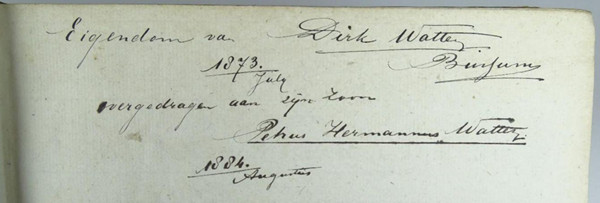 Eigendom van Dirk Watter
1873. Buijum
July
overgedragen aan zijn Zoon
Petrus Hermannus Watter
1884.
Augustus